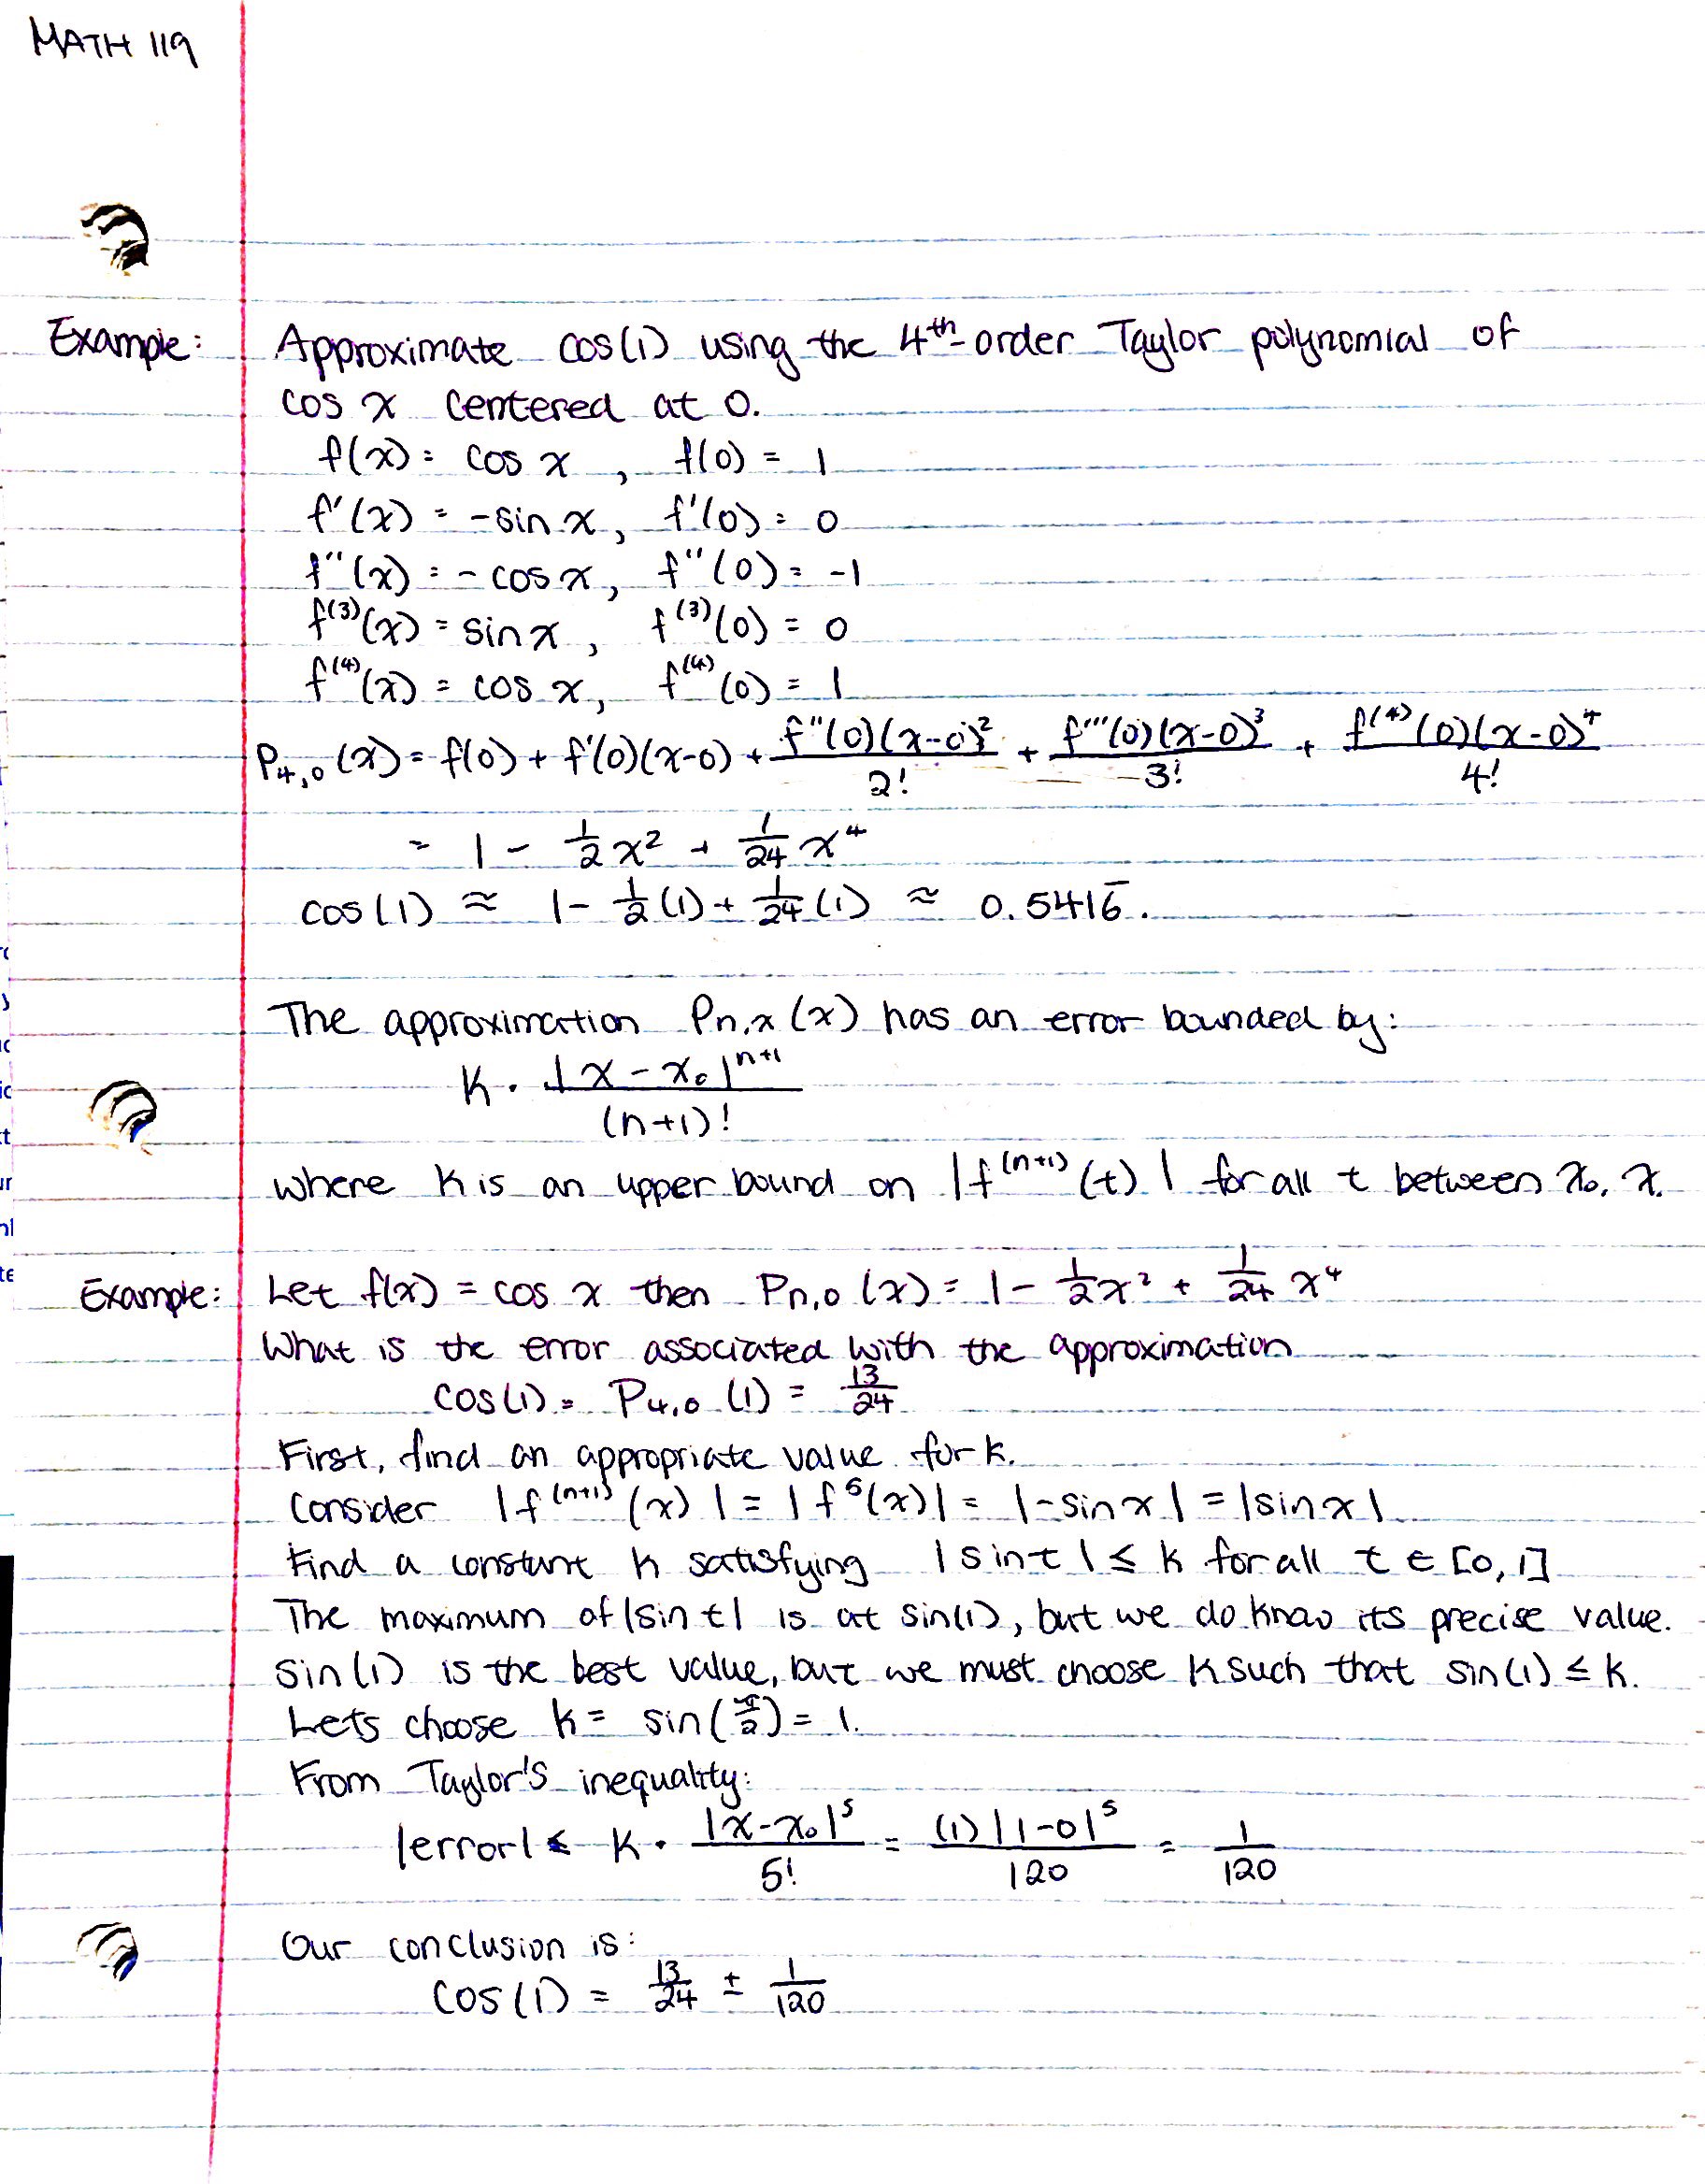 MATH 119
Example: Approximate cos(1) using the 4th-order Taylor polynomial of
cos x centered at 0.
f(x) = cos x , f(0) = 1
f'(x) = -sin x, f'(0) = 0
f''(x) = - cos x, f''(0) = -1
f^(3)(x) = sin x , f^(3)(0) = 0
f^(4)(x) = cos x, f^(4)(0) = 1
P4,0 (x) = f(0) + f'(0)(x-0) + f''(0)(x-0)²/2! + f'''(0)(x-0)³/3! + f^(4)(0)(x-0)⁴/4!
= 1 - 1/2 x² + 1/24 x⁴
cos(1) ≈ 1 - 1/2 (1) + 1/24 (1) ≈ 0.5416̅.
The approximation Pn,x (x) has an error bounded by:
K · |x - x₀|^(n+1)/(n+1)!
where K is an upper bound on |f^(n+1) (t) | for all t between x₀, x.
Example: Let f(x) = cos x then Pn,0 (x) = 1 - 1/2 x² + 1/24 x⁴
What is the error associated with the approximation
cos(1) = P4,0 (1) = 13/24
First, find an appropriate value for K.
Consider |f^(n+1) (x) | = | f⁵(x)| = |-sin x| = |sin x|
Find a constant K satisfying |sin t| ≤ K for all t ∈ [0, 1]
The maximum of |sin t| is at sin(1), but we do know its precise value.
sin(1) is the best value, but we must choose K such that sin(1) ≤ K.
Lets choose K = sin(π/2) = 1.
From Taylor's inequality:
|error| ≤ K · |x-x₀|⁵/5! = (1) |1-0|⁵/120 = 1/120
Our conclusion is:
cos(1) = 13/24 ± 1/120